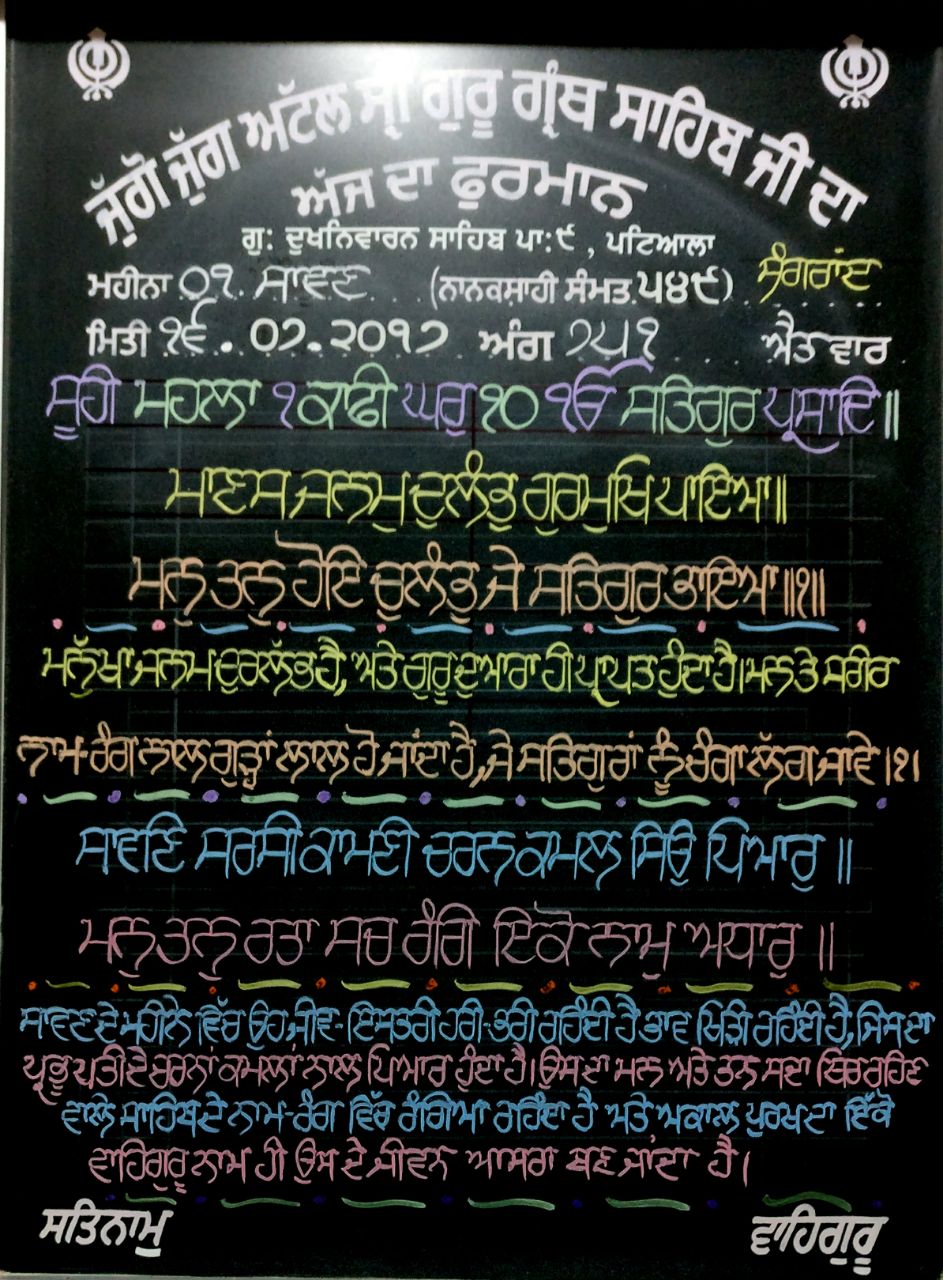 ਜੁੱਗੋ ਜੁੱਗ ਅਟੱਲ ਸ੍ਰੀ ਗੁਰੂ ਗ੍ਰੰਥ ਸਾਹਿਬ ਜੀ ਦਾ
ਅੱਜ ਦਾ ਫੁਰਮਾਨ
ਗੁ: ਦੁਖਨਿਵਾਰਨ ਸਾਹਿਬ ਪਾ:੯ , ਪਟਿਆਲਾ
ਮਹੀਨਾ ੦੧ ਸਾਵਣ (ਨਾਨਕਸ਼ਾਹੀ ਸੰਮਤ ੫੪੯) ਸੰਗਰਾਂਦ
ਮਿਤੀ ੧੬.੦੭.੨੦੧੭ ਅੰਗ ੭੫੧ ਐਤ ਵਾਰ
ਸੂਹੀ ਮਹਲਾ ੧ ਕਾਫੀ ਘਰੁ ੧੦ ੴ ਸਤਿਗੁਰ ਪ੍ਰਸਾਦਿ॥
ਮਾਣਸ ਜਨਮੁ ਦੁਲੰਭੁ ਗੁਰਮੁਖਿ ਪਾਇਆ॥
ਮਨੁ ਤਨੁ ਹੋਇ ਚੁਲੰਭੁ ਜੇ ਸਤਿਗੁਰ ਭਾਇਆ॥੧॥
ਮਨੁੱਖਾ ਜਨਮ ਦੁਰਲੱਭ ਹੈ, ਅਤੇ ਗੁਰੂ ਦੁਆਰਾ ਹੀ ਪ੍ਰਾਪਤ ਹੁੰਦਾ ਹੈ। ਮਨ ਤੇ ਸਰੀਰ
ਨਾਮ-ਰੰਗ ਨਾਲ ਗੂੜ੍ਹਾਂ ਲਾਲ ਹੋ ਜਾਂਦਾ ਹੈ, ਜੇ ਸਤਿਗੁਰਾਂ ਨੂੰ ਚੰਗਾ ਲੱਗ ਜਾਵੇ।੧।
ਸਾਵਣਿ ਸਰਸੀ ਕਾਮਣੀ ਚਰਨ ਕਮਲ ਸਿਉ ਪਿਆਰੁ ॥
ਮਨੁ ਤਨੁ ਰਤਾ ਸਚ ਰੰਗਿ ਇਕੋ ਨਾਮੁ ਅਧਾਰੁ ॥
ਸਾਵਣ ਦੇ ਮਹੀਨੇ ਵਿੱਚ ਉਹ ਜੀਵ-ਇਸਤਰੀ ਹਰੀ-ਭਰੀ ਰਹਿੰਦੀ ਹੈ ਭਾਵ ਖਿੜੀ ਰਹਿੰਦੀ ਹੈ, ਜਿਸ ਦਾ
ਪ੍ਰਭੂ ਪਤੀ ਦੇ ਚਰਨਾਂ ਕਮਲਾਂ ਨਾਲ ਪਿਆਰ ਹੁੰਦਾ ਹੈ। ਉਸ ਦਾ ਮਨ ਅਤੇ ਤਨ ਸਦਾ ਥਿਰ ਰਹਿਣ
ਵਾਲੇ ਸਾਹਿਬ ਦੇ ਨਾਮ-ਰੰਗ ਵਿੱਚ ਰੰਗਿਆ ਰਹਿੰਦਾ ਹੈ ਅਤੇ ਅਕਾਲ ਪੁਰਖ ਦਾ ਇੱਕੋ
ਵਾਹਿਗੁਰੂ ਨਾਮ ਹੀ ਉਸ ਦੇ ਜੀਵਨ ਆਸਰਾ ਬਣ ਜਾਂਦਾ ਹੈ।
ਸਤਿਨਾਮੁ ਵਾਹਿਗੁਰੂ